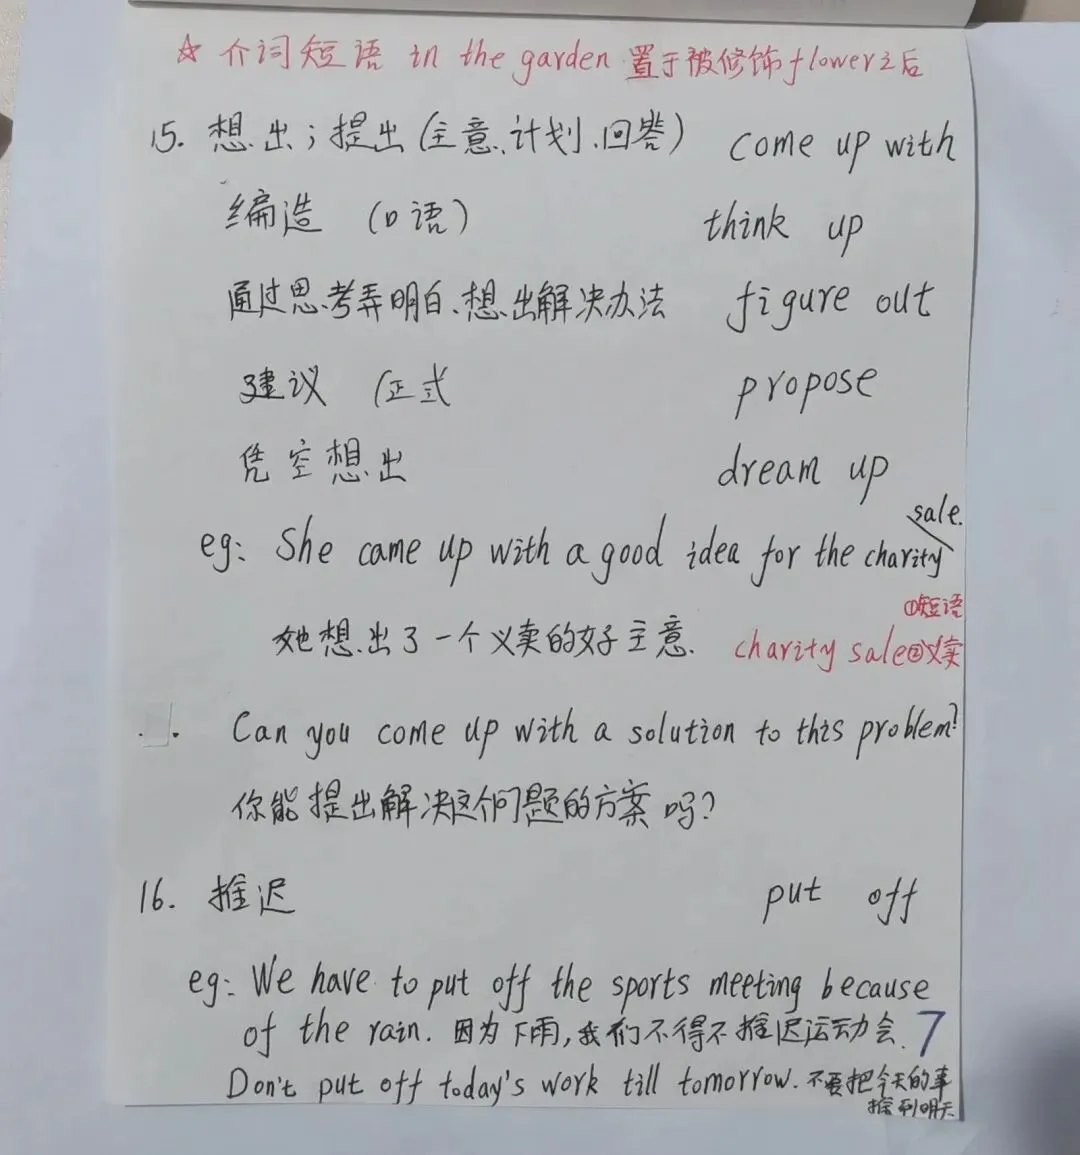 ☆ 介词短语 in the garden 置于被修饰flower之后
15. 想出；提出(主意、计划、回答) come up with
编造 (口语) think up
通过思考弄明白、想出解决办法 figure out
建议 (正式 propose
凭空想出 dream up
sale.
eg: She came up with a good idea for the charity
①短语
她想出了一个义卖的好主意. charity sale②义卖
Can you come up with a solution to this problem?
你能提出解决这个问题的方案吗?
16. 推迟 put off
eg: We have to put off the sports meeting because
of the rain. 因为下雨,我们不得不推迟运动会. 7
Don't put off today's work till tomorrow. 不要把今天的事
推到明天